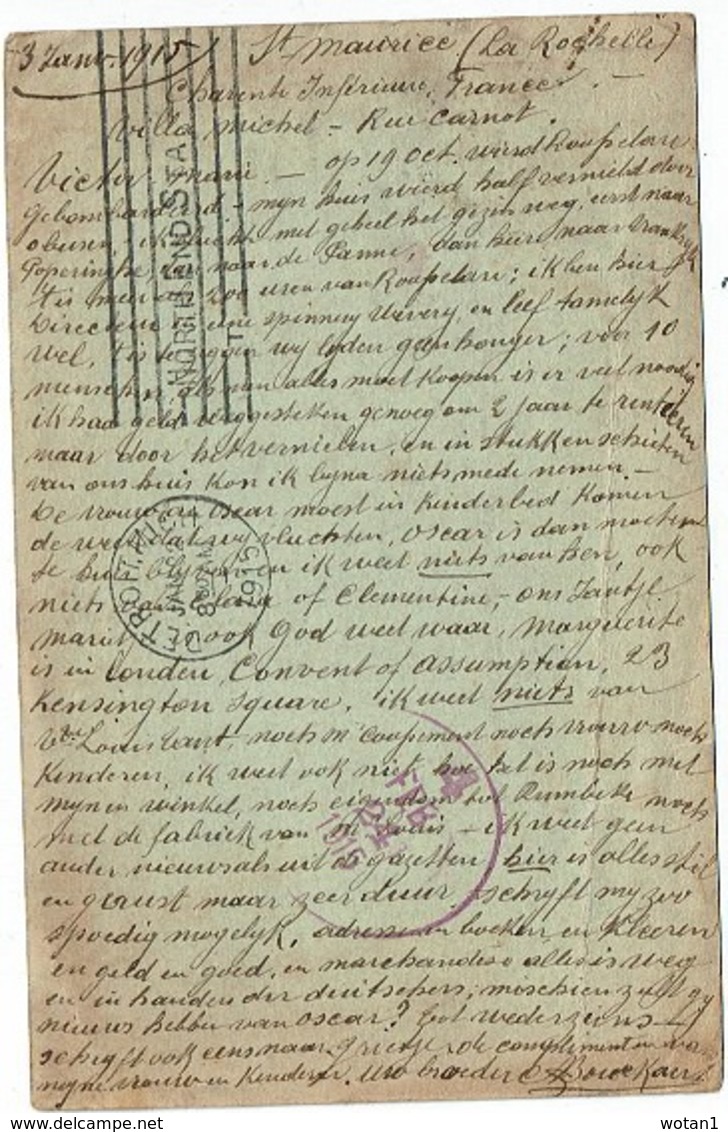 3 Janv. 1915 St Maurice (La Rochelle)
Charente Inférieure, France
Villa Michel - Rue Carnot.
Victor Marie - op 19 oct. wierd Rousselare
gebombardeerd - myn huis wierd half vernield door
obusen, - ik vlucht met geheel het gezin weg, eerst naar
Poperinghe, naar de Panne, van hier naar Vrankryk
't is meer als 200 uren van Rousselare; ik ben hier
Directeur in eene spinnery wevery, en leef tamelyk
wel, t is te zeggen wy lyden geen honger; voor 10
menschen, als men alles moet koopen is er veel noodig
ik had geld weggesteken genoeg om 2 jaar te renteeren
maar door het vernielen, en in stukken schieten
van ons huis kon ik byna niets mede nemen. -
De vrouw van Oscar moest in kinderbed komen
de week dat wy vluchten, Oscar is dan moeten
te huis blyven en ik weet niets van hen, ook
niets van of Clementine, - ons Jantje
Marie ook God weet waar, Marguerite
is in Londen, Convent of Assumption, 23
Kensington Square. ik weet niets van
Louis Want, noch m Coopement noch vrouw noch
Kinderen, ik weet ook niet hoe het is noch met
myn winkel, noch eigendom tot Rumbeke noch
met de fabriek van M. Louis - ik weet geen
ander nieuws als uit de gazetten hier is alles stil
en gerust maar zeer duur, schryft my zoo
spoedig mogelyk, adressen boeken en kleeren
en geld en goed, en marchandise alles is weg
en in handen der duitschers; misschien zult gy
nieuws hebben van Oscar? Tot wederziens -
schryft ook eens naar Grietje, de complimenten van
myne vrouw en kinders. Uw broeder
NORTH END STA
DETROIT, MICH.
JAN 24
8 PM
1915
FEB
1915
wotan1